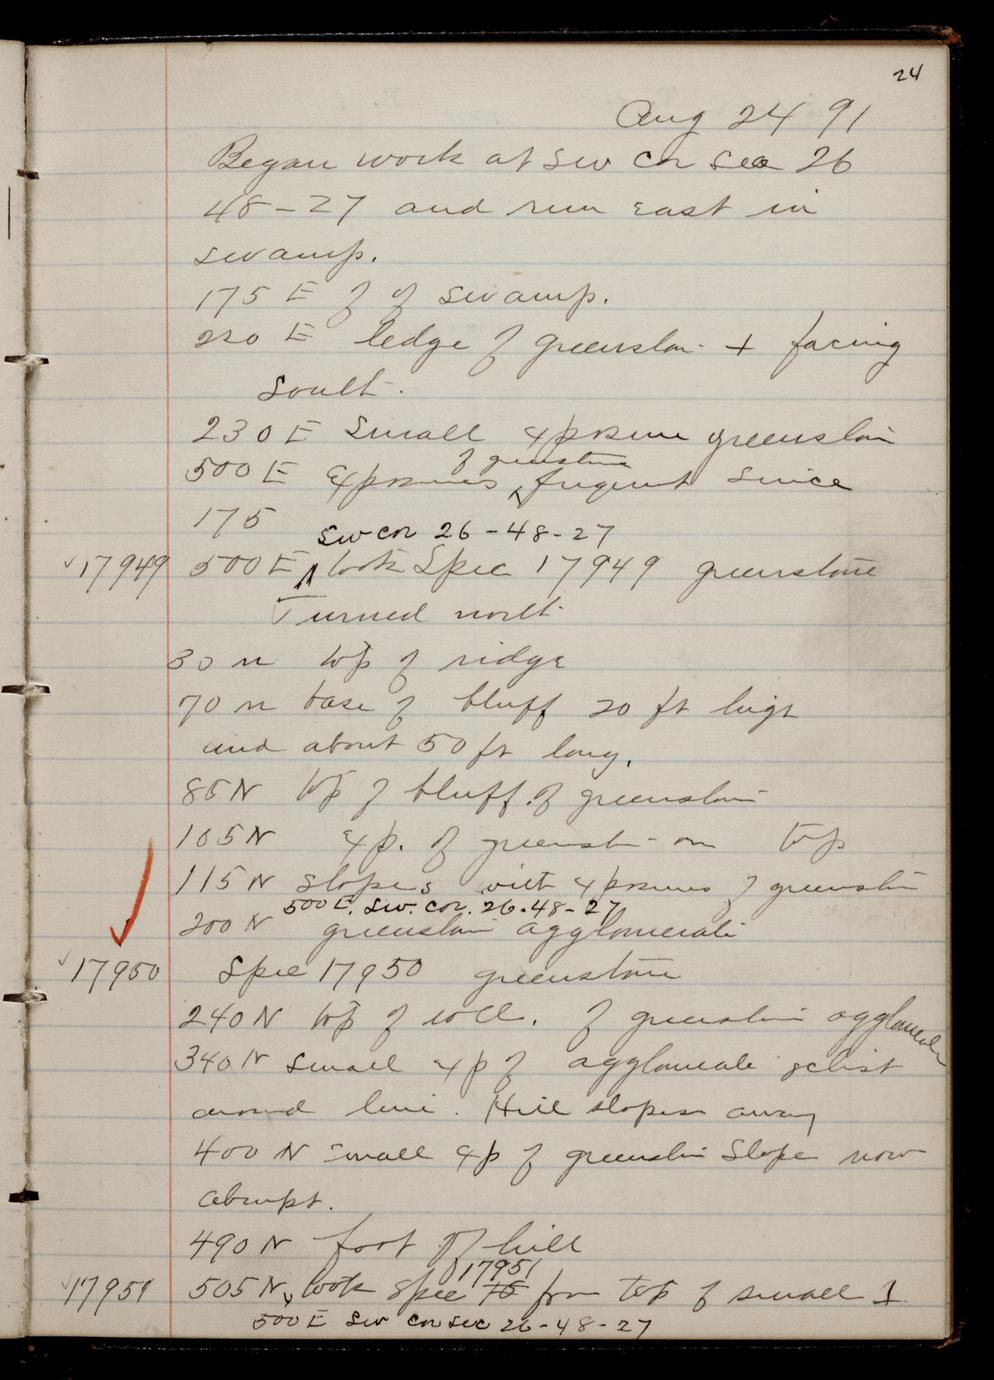 24
Aug 24 91
Began work at SW Cor Sec 26
48-27 and run east in
swamp.
175 E of swamp.
220 E ledge of greenston + facing
South.
230 E Small exposure greenston
of greenstone
500 E Exposures frequent since
175
SW cor 26-48-27
17949 500 E took Spec 17949 greenstone
Turned north
30 N top of ridge
70 N base of bluff 20 ft high
and about 50 ft long.
85 N top of bluff of greenston
105 N exp. of greenston on top
115 N Slopes with exposures of greenston
500 E. SW. Cor. 26-48-27
200 N greenston agglomerate
17950 Spec 17950 greenstone
240 N top of roll. of greenston agglomerate
340 N Small exp of agglomerate schist
around line. Hill slopes away
400 N Small exp of greenston Slope now
abrupt.
490 N foot of hill
17951
17951 505 N, took spec from top of small 1
500 E SW cor sec 26-48-27